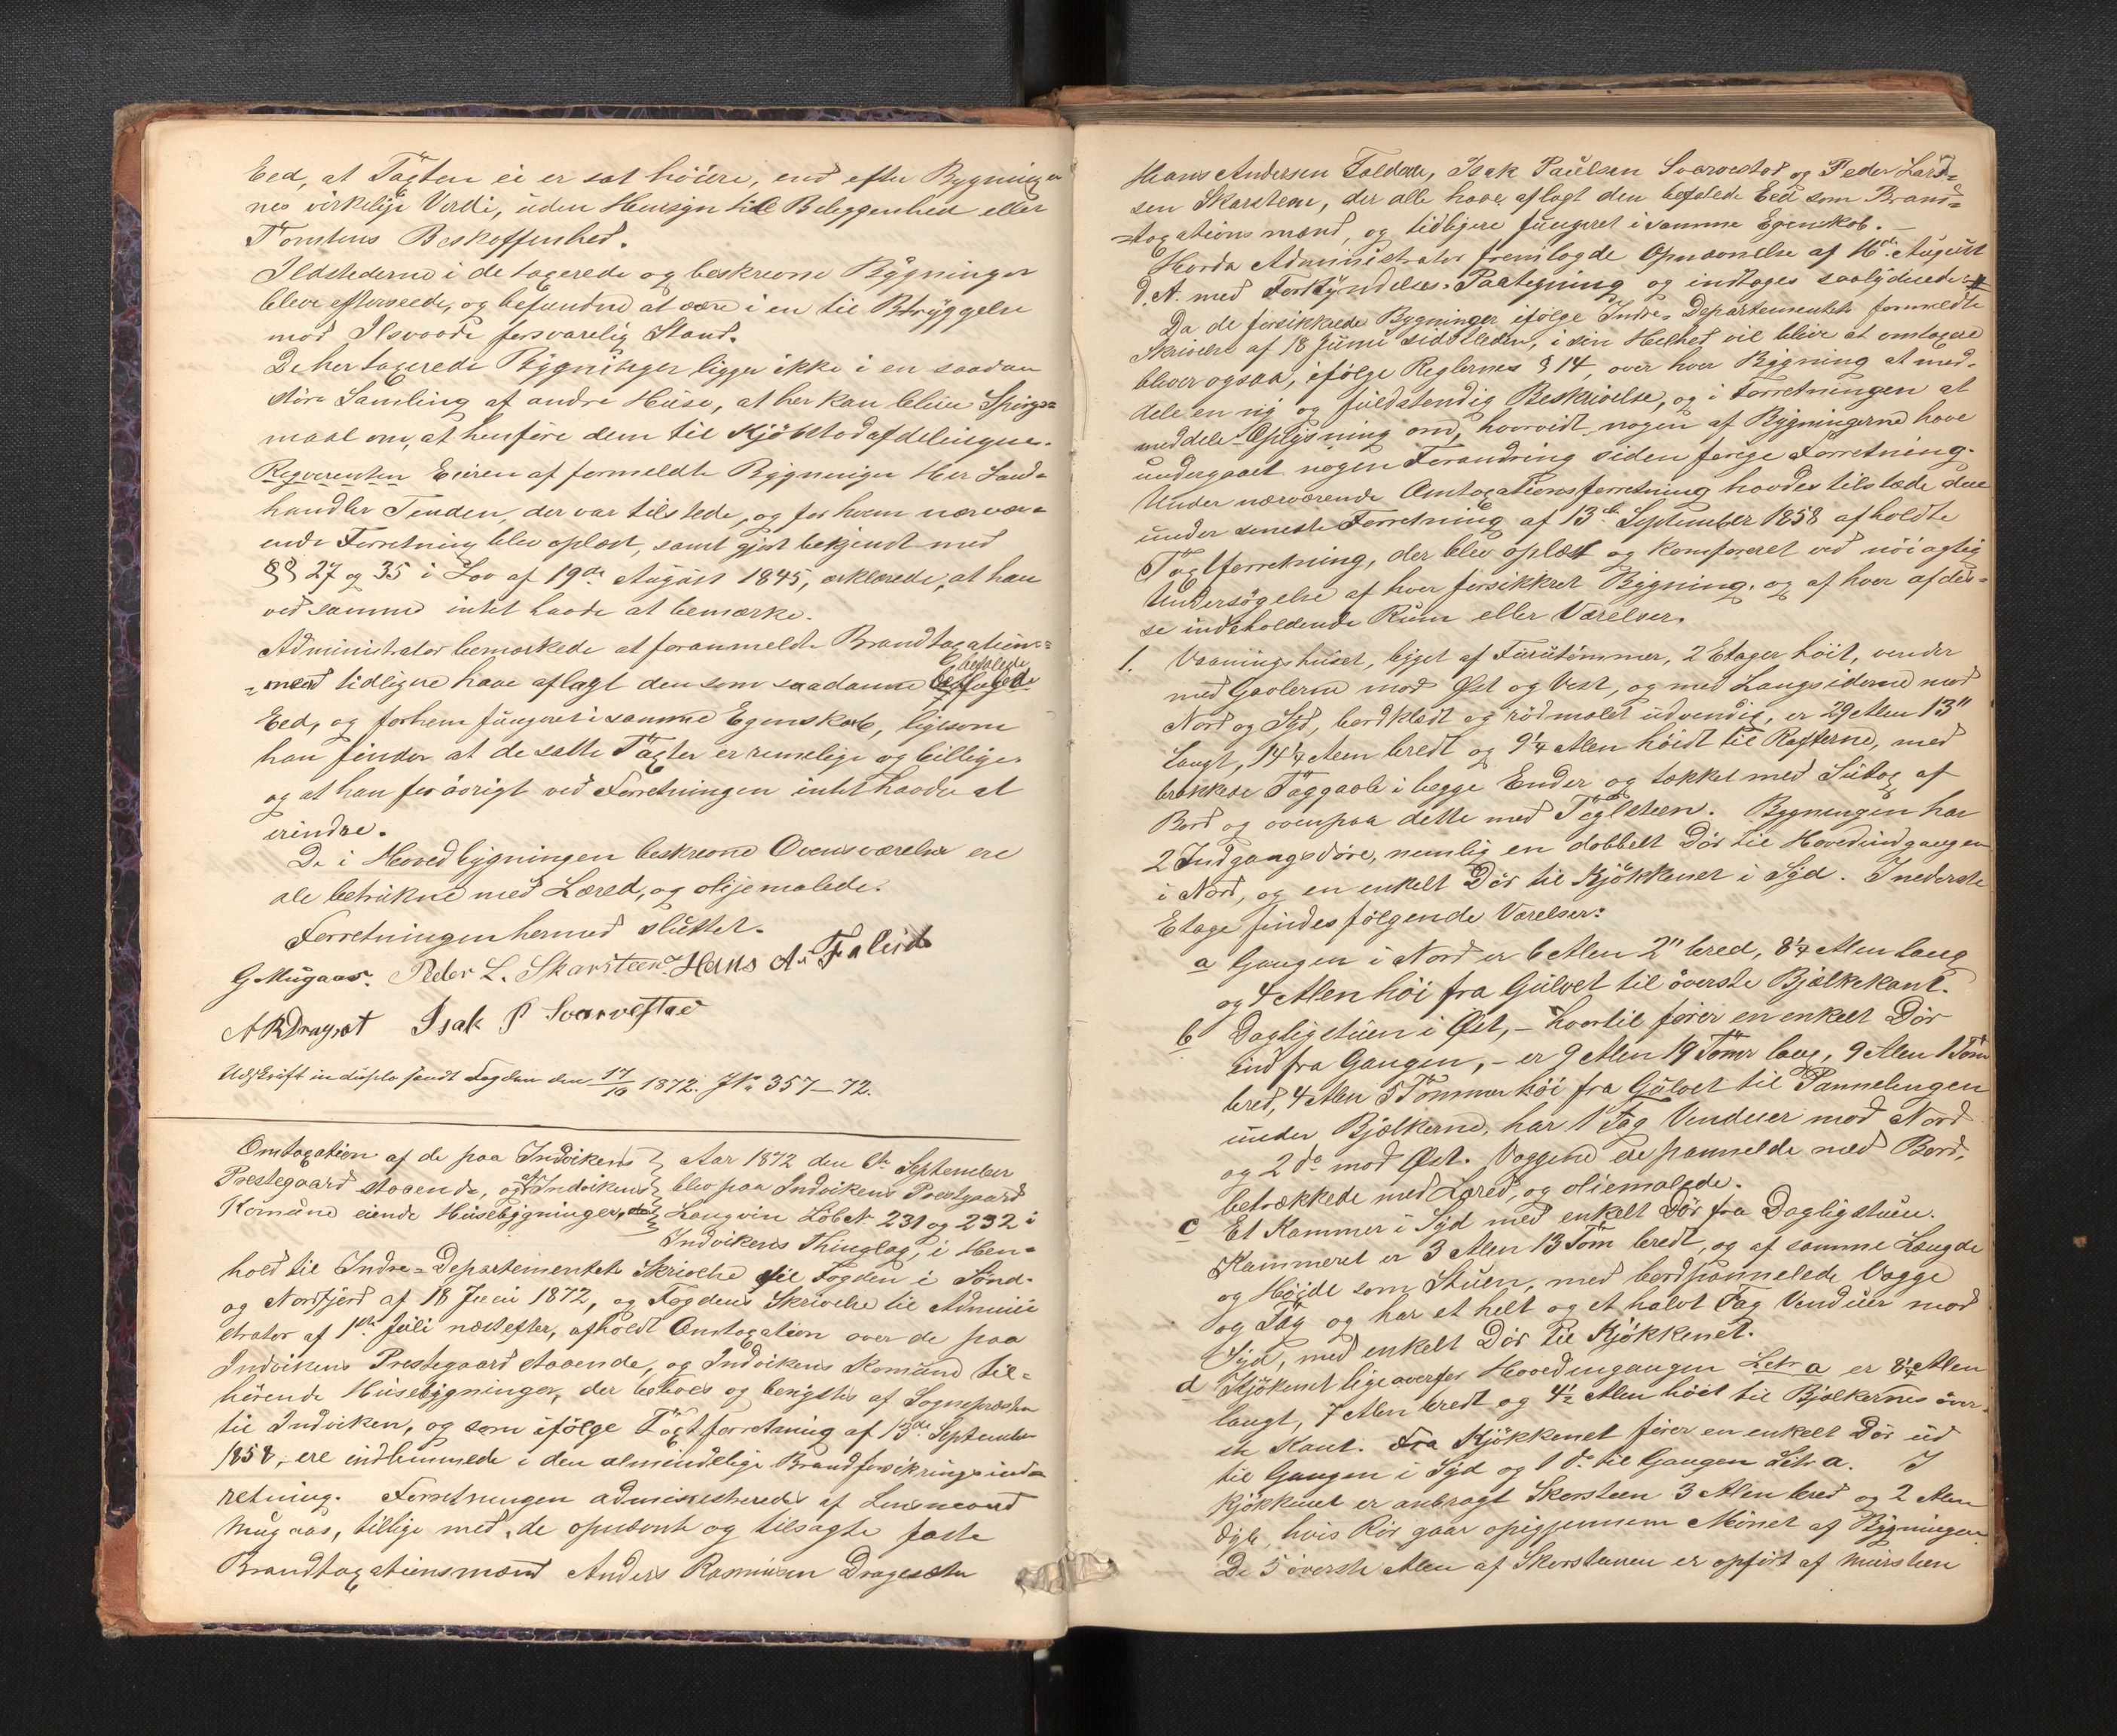 Eed, at Taxten ei er sat höiere, end efter Bygninger
nes virkelige Verdi, uden Hensyn til Beleggenhed eller
Tomtens Beskaffenhed.
Ildstederne i de taxerede og beskrevne Bygninger
bleve efterseede, og befundne at være i en til Betryggelse
mod Ilsvaade forsvarelig Stand.
De her taxerede Bygninger ligger ikke i en saadan
større Samling af andre Huse, at her kan blive Spörgs=
maal om, at henføre dem til Kjöbstadafdelingen.
Reqverenten Eieren af formeldte Bygninger Her Land=
handler Tenden, der var tilstede, og for hvem nærvær=
ende Forretning blev oplæst, samt gjort bekjendt med
§§ 27 og 35 i Lov af 19de August 1845, erklærede, at han
ved samme intet havde at bemærke.
Administrator bemærkede at foranmeldte Brandtaxations=
=mænd tidligere have aflagt den som saadanne befalede
Eed, og forhen fungeret i samme Egenskab, ligesom
han finder at de satte Taxter er rimelige og billige,
og at han for övrigt ved Forretningen intet havde at
erindre.
De i Hovedbygningen beskrevne Ovensværelser ere
ale betrukne med Lærred, og oliemalede.
Forretningen hermed sluttet.
G Mugaas. Peder L. Skarsteen. Hans A. Faleide
A R Dragset Isak P Svarvestad
Udskrift in duplo sendt Fogden den 17/10 1872. J No 357-72.
Omtaxation af de paa Indvikens
Prestegaard staaende, og af Indvikens
Komune eiende Husebygninger,
Aar 1872 den 6te September
blev paa Indvikens Prestgaard
Løb No 231 og 232 i
Indvikens Thinglag, i Hen=
hold til Indre=Departementets Skrivelse til Fogden i Sönd=
og Nordfjord af 18 Juni 1872, og Fogdens Skrivelse til Admini
strator af 1ste Juli næstefter, afholdt Omtaxation over de paa
Indvikens Prestegaard staaende, og Indvikens Komune til=
hörende Husebygninger, der beboes og benyttes af Sognepresten
til Indviken, og som ifölge Taxtforretning af 13de September
1858, ere indlemmede i den almindelige Brandforsikringsind=
retning. Forretningen administreredes af Lensmand
Mugaas, tillige med de opnævnte og tilsagte faste
Brandtaxationsmænd Anders Rasmusen Dragesæter
Hans Andersen Faleide, Isak Paulsen Svarvestad og Peder Lars=
sen Skarsteen, der alle have aflagt den befalede Eed som Brand=
=taxationsmænd, og tidligere fungeret i samme Egenskab.
Administrator fremlagde Opnævnelse af 16de August
d. A. med Forkyndelses-Paategning og indtages saalydende:#
Da de forsikkrede Bygninger ifölge Indre-Departementets formeldte
Skrivelse af 18 Juni sidstleden, i sin Helhed vil blive at omtaxere
bliver ogsaa, ifölge Reglernes § 14, over hver Bygning at med=
dele en ny og fuldstendig Beskrivelse, og i Forretningen at
meddele Oplysning om, hvorvidt nogen af Bygningerne have
undergaaet nogen Forandring siden forige Forretning.
Under nærværende Omtaxationsforretning havdes tilstæde den
under seneste Forretning af 13de September 1858 afholdte
Taxtforretning, der blev oplæst og komfereret ved nöiagtig
Undersögelse af hver forsikkret Bygning, og af hver af dis=
se indeholdende Rum eller Værelser.
1. Vaaningshuset, bygget af Furutömmer, 2 Etager höit, vender
med Gavlerne mod Øst og Vest, og med Langsiderne mod
Nord og Syd, bordklædt og rödmalet udvendig, er 29 Alen 13"
langt, 14 1/4 Alen bredt og 9 1/4 Alen höidt til Rafterne, med
brækkede Taggavle i begge Ender og tækket med Sutag af
Bord og ovenpaa dette med Taglsteen. Bygningen har
2 Indgangsdöre, nemlig en dobbelt Dör til Hovedindgangen
i Nord, og en enkelt Dör til Kjökkenet i Syd. I nederste
Etage findes fölgende Værelser:
a Gangen i Nord er 6 Alen 2" bred, 8 1/4 Alen lang
og 4 Alen höi fra Gulvet til överste Bjælkekant.
b Dagligstuen i Øst, - hvortil förer en enkelt Dör
ind fra Gangen, - er 9 Alen 19 Tomr lang, 9 Alen 1 Tom
bred, 4 Alen 5 Tommer höi fra Gölvet til Pannelingen
under Bjælkerne, har 1 Fag Venduer mod Nord
og 2 do mod Øst. Væggene ere pannelde med Bord,
betrækkede med Læred, og oliemalede.
c Et Kammer i Syd med enkelt Dör fra Dagligstuen.
Kammeret er 3 Alen 13 Tom bredt, og af samme Længde
og Höide som Stuen, med bordpannelede Vægge
og Tag og har et helt og et halvt Fag Venduer mod
Syd, med enkelt Dör til Kjökkenet.
d Kjökenet ligeoverfor Hovedingangen Letr a er 8 1/4 Alen
langt, 7 Alen bredt og 4 1/2 Alen höit til Bjælkernes över=
ste Kant. Fra Kjökkenet förer en enkelt Dör ud
til Gangen i Syd og 1 do til Gangen Letr a. I
Kjökkenet er anbragt Skorsteen 3 Alen bred og 2 Alen
dyb, hvis Rör gaar op igjennem Mönet af Bygningen.
De 5 överste Alen af Skorstenen er opfört af Mursteen